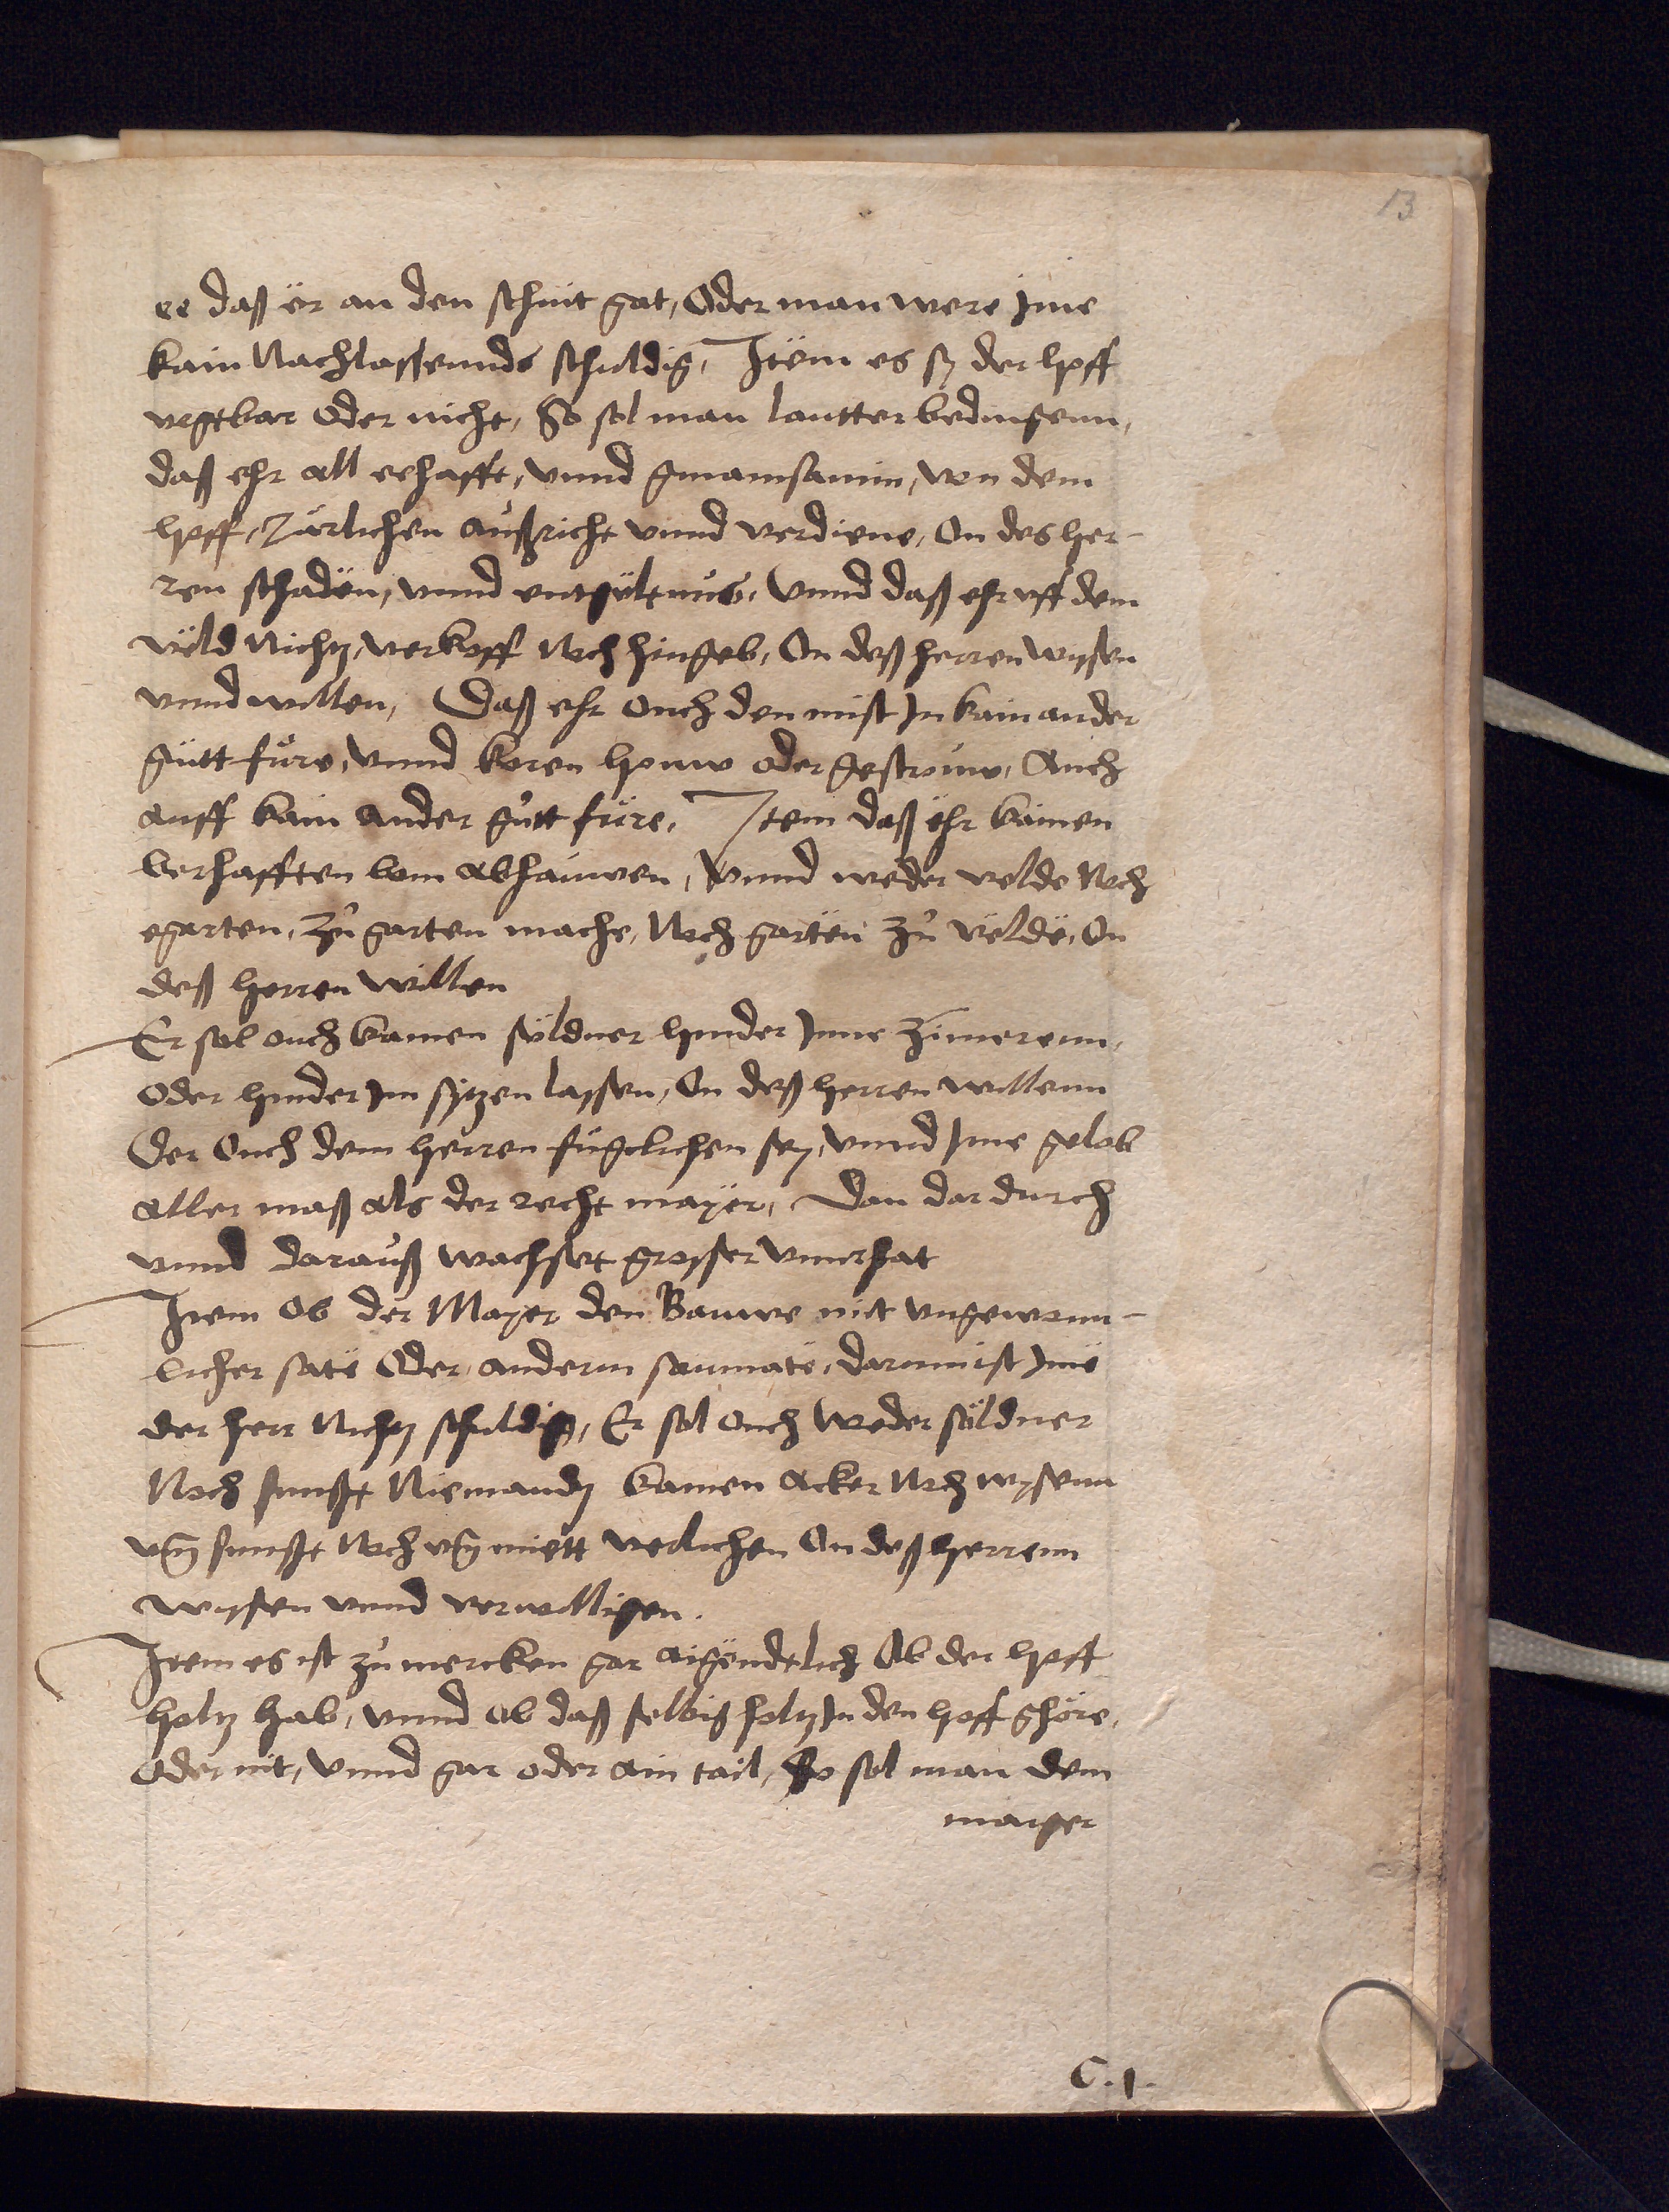 13
ee daß ër an den schnit gat, Oder man were Jme
kain Nachlassennds schuldig, Jtëm es sÿ der hoff
vogtbar oder nicht, So sol man lautter bedingenn,
daß ehr all eehafft, vnnd gmainsamin, von dem
hoff, Järlichen außricht vnnd verdiene, On des her-
ren schadën, vnnd entgëltnus, Vnnd daß ehr vff dem
vëld Nichtz, verkoff Noch hingeb, On deß herren wyssen
vnnd willen, Daß ehr ouch den mist Jn kain ander
gütt füre, Vnnd koren houw oder gestrouw, Auch
auff kain ander gůtt füre, Jtem daß ëhr kainen
berhafften bom abhauwen, Vnnd weder velde Noch
egarten, zů garten mache, Noch gartën zů vëldë, On
deß herren willen
Er sol ouch kainen sŏldner hinder Jnne zimerenn,
oder hinder Jm sÿtzen lassen, On deß herren willenn
Der Ouch dem herren fügclichen seÿ, vnnd Jme gelob
aller maß als der recht maÿer, Dan dar durch
vnnd darauß wachsset grosser vnnrhat
Jtem Ob der Maÿer den Bauwe mit vngewonn-
licher satë Oder anderm saumatë, darumb ist Jmë
der herr Nichtz schuldig, Er sol ouch weder sŏldner
Noch sunßt Niemandtz kainen acker Noch wysenn
vmb sunßt Noch vmb miëtt verlichen On deß herrenn
wyssen vnnd verwilligen.
Jtem es ist zů mercken gar aigëndtlich Ob der hoff
holtz hab, vnnd ob daß selbig holtz Jn den hoff ghŏre,
oder nit, Vnnd gar oder ain tail, So sol man dem
maiger
C.j.